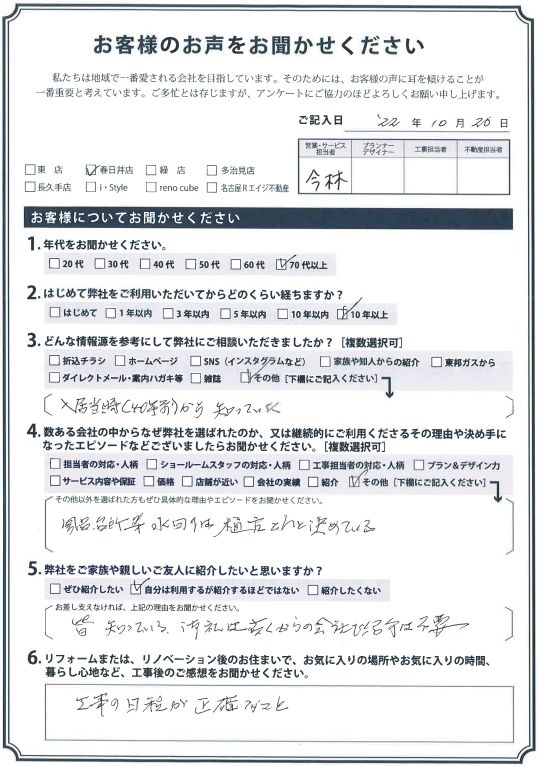 お客様のお声をお聞かせください
私たちは地域で一番愛される会社を目指しています。そのためには、お客様の声に耳を傾けることが
一番重要と考えています。ご多忙とは存じますが、アンケートにご協力のほどよろしくお願い申し上げます。
ご記入日 '22 年 10 月 26 日
営業・サービス担当者 プランナーデザイナー 工事担当者 不動産担当者
今林
□東 店 ☑春日井店 □緑 店 □多治見店
□長久手店 □i・Style □reno cube □名古屋Rエイジ不動産
お客様についてお聞かせください
1. 年代をお聞かせください。
□20代 □30代 □40代 □50代 □60代 ☑70代以上
2. はじめて弊社をご利用いただいてからどのくらい経ちますか？
□はじめて □1年以内 □3年以内 □5年以内 □10年以内 ☑10年以上
3. どんな情報源を参考にして弊社にご相談いただきましたか？［複数選択可］
□折込チラシ □ホームページ □SNS（インスタグラムなど） □家族や知人からの紹介 □東邦ガスから
□ダイレクトメール・案内ハガキ等 □雑誌 ☑その他［下欄にご記入ください］
入居当時(40年前)から 知っていた
4. 数ある会社の中からなぜ弊社を選ばれたのか、又は継続的にご利用くださるその理由や決め手に
なったエピソードなどございましたらお聞かせください。［複数選択可］
□担当者の対応・人柄 □ショールームスタッフの対応・人柄 □工事担当者の対応・人柄 □プラン＆デザイン力
□サービス内容や保証 □価格 □店舗が近い □会社の実績 □紹介 ☑その他［下欄にご記入ください］
その他以外を選ばれた方もぜひ具体的な理由やエピソードをお聞かせください。
風呂、台所等 水回りは と決めている
5. 弊社をご家族や親しいご友人に紹介したいと思いますか？
□ぜひ紹介したい ☑自分は利用するが紹介するほどではない □紹介したくない
お差し支えなければ、上記の理由をお聞かせください。
皆 知っている、御社は古くからの会社で紹介は不要
6. リフォームまたは、リノベーション後のお住まいで、お気に入りの場所やお気に入りの時間、
暮らし心地など、工事後のご感想をお聞かせください。
工事の日程が正確なこと